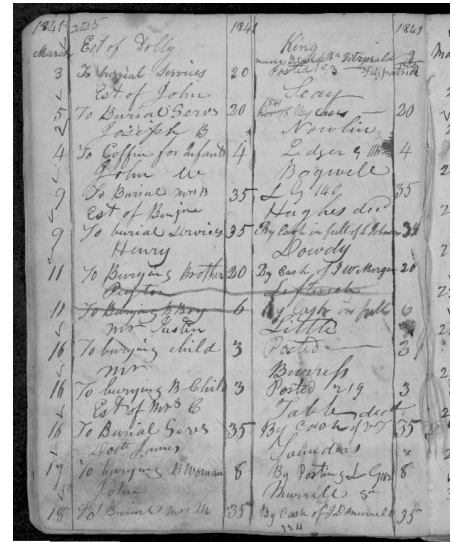 1841 225 1841 1841
March Est of Dolly King
3 To burial Services 20 Posted 193 Fitzpatrick
Est of John Seay
5 To Burial Servs 20 By Cash 20
Joseph B Nowlin
4 To Coffin for Infant 4 Ledger 4
John W Bagwell
9 To Burial Mrs B 35 L G 140 35
Est of Benjn Hughes decd
9 To burial Services 35 By Cash in full of 35
Henry Dowdy
11 To Burying Brother 20 By Cash of J W Morgan 20
Peyton Leftwich
11 To Burying B Boy 6 By Cash in full 6
Mrs Justin Little
16 To burying child 3 Posted 3
Mrs Burress
16 To burying B Child 3 Posted 219 3
Est of Mrs C Table decd
16 To Burial Servs 35 By Cash of 35
Doct James Saunders
17 To burying B Woman 8 By Posting L G 8
John Murrell
18 To Burial Mrs M 35 By Cash of J D Murrell 35
224